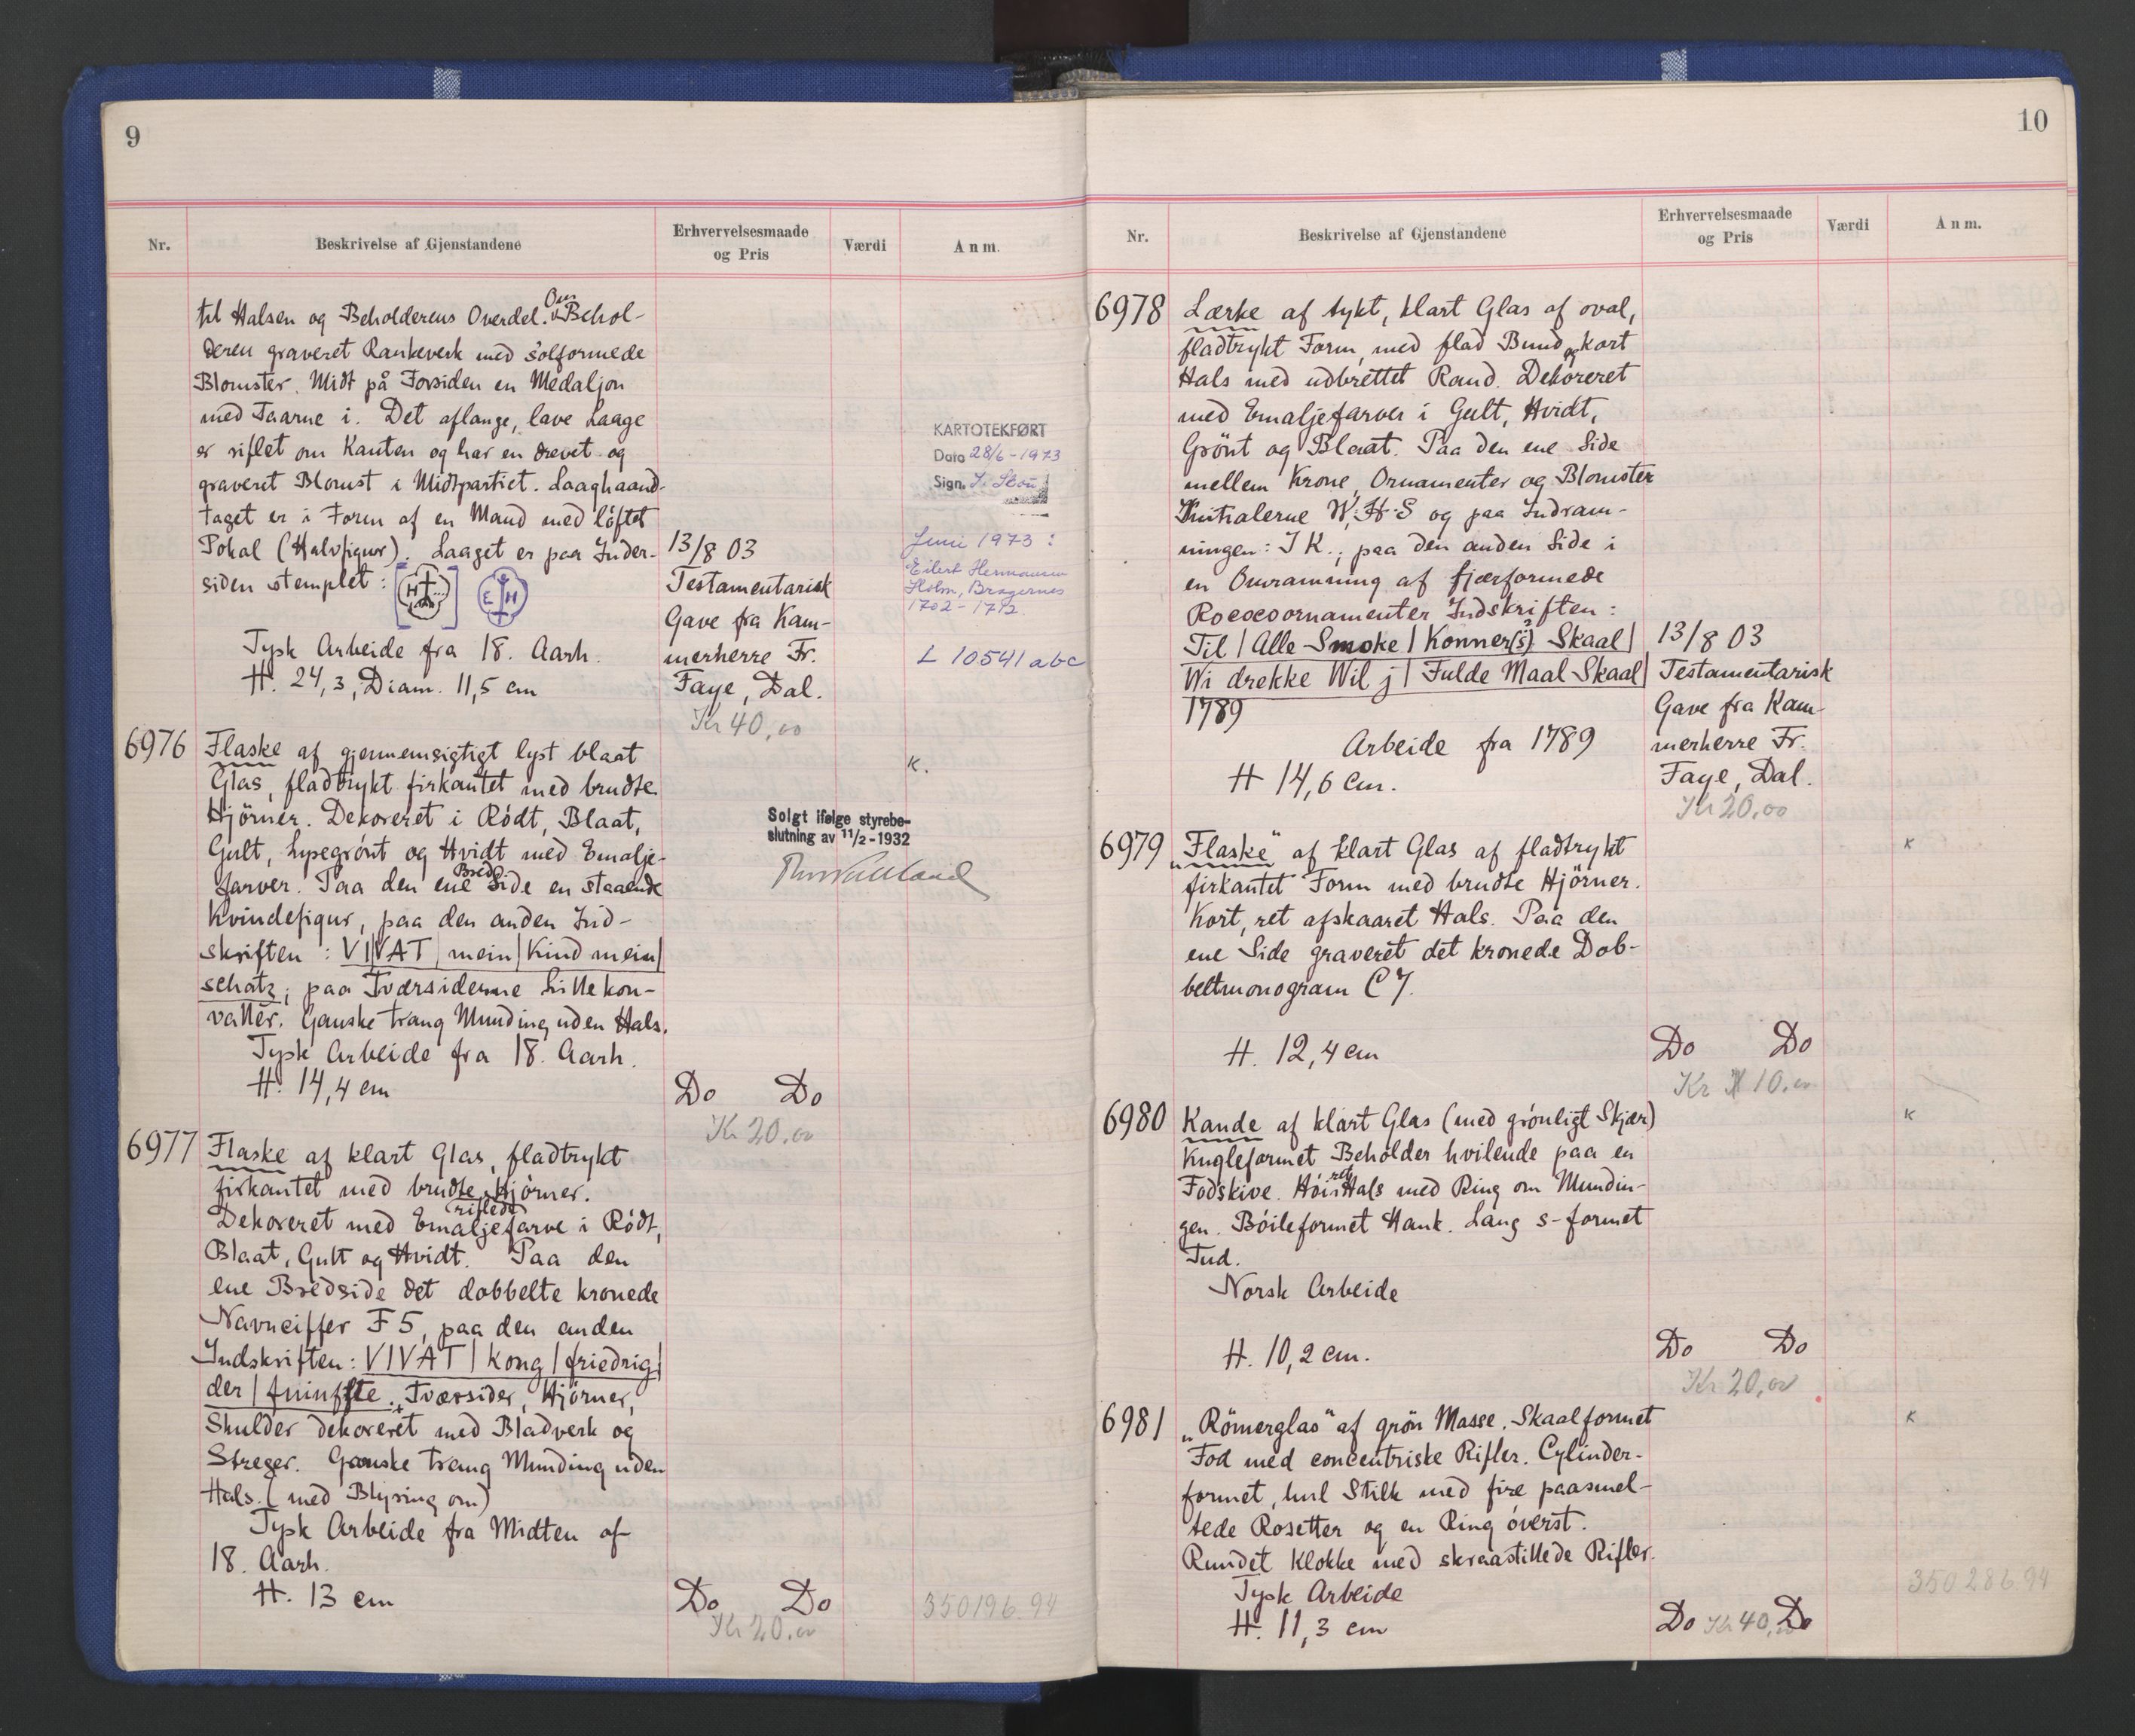 9
Nr.
Beskrivelse af Gjenstandene
Erhvervelsesmaade
og Pris
Værdi
Anm.
til Halsen og Beholderens Overdel. Om Behol-
deren graveret Rankeverk med solformede
Blomster. Midt på Forsiden en Medaljon
med Taarne i. Det aflange, lave Laage
er riflet om Kanten og har en drevet og
graveret Blomst i Midtpartiet. Laaghaand-
taget er i Form af en Mand med løftet
Pokal (Halvfigur). Laaget er paa Inder-
siden stemplet: H E H
Tysk Arbeide fra 18. Aarh.
H. 24,3, Diam. 11,5 cm
13/8 03
Testamentarisk
Gave fra Kam-
merherre Fr.
Faye, Dal.
Kr 40,00
KARTOTEKFØRT
Dato 28/6-1973
Sign.
Juni 1973:
Eilert Hermansen
Holm, Bragernes
1702-1712
L 10541 abc
6976
Flaske af gjennemsigtigt lyst blaat
Glas, fladtrykt firkantet med brudte
Hjörner. Dekoreret i Rödt, Blaat,
Gult, Lysegrönt og Hvidt med Emalje-
farver. Paa den ene Bredside en staaende
Kvindefigur, paa den anden Ind-
skriften: VI|VAT|mein|Kind mein|
schatz; paa Tværsiderne Lillekon-
valler. Ganske trang Munding uden Hals.
Tysk Arbeide fra 18. Aarh.
H. 14,4 cm
Do Do
Kr 20,00
K.
Solgt ifølge styrebe-
slutning av 11/2-1932
6977
Flaske af klart Glas, fladtrykt
firkantet med brudte riflede Hjörner.
Dekoreret med Emaljefarve i Rödt,
Blaat, Gult og Hvidt. Paa den
ene Bredside det dobbelte kronede
Navneciffer F5, paa den anden
Indskriften: VIVAT|Kong|friedrig|
der|fuinffte. Tværsider, Hjörner,
Skulder dekoreret med Bladverk og
Streger. Ganske trang Munding uden
Hals. (med Blyring om)
Tysk Arbeide fra Midten af
18. Aarh.
H. 13 cm
Do Do
Kr 20,00
350196.94
10
Nr.
Beskrivelse af Gjenstandene
Erhvervelsesmaade
og Pris
Værdi
Anm.
6978
Lærke af tykt, klart Glas af oval,
fladtrykt Form, med flad Bund og kort
Hals med udbrettet Rand. Dekoreret
med Emaljefarver i Gult, Hvidt,
Grönt og Blaat. Paa den ene Side
mellem Krone, Ornamenter og Blomster
Initialerne W.H.S og paa Indram-
ningen: I K.; paa den anden Side i
en Omramning af fjærformede
Rococoornamenter Indskriften:
Til|Alle Smoke|Konner(s?) Skaal|
Wi drekke Wil j|Fulde Maal Skaal|
1789
Arbeide fra 1789
H 14,6 cm.
13/8 03
Testamentarisk
Gave fra Kam-
merherre Fr.
Faye, Dal.
Kr 20,00
6979
"Flaske" af klart Glas af fladtrykt
firkantet Form med brudte Hjörner.
Kort, ret afskaaret Hals. Paa den
ene Side graveret det kronede Dob-
beltmonogram C7.
H. 12,4 cm
Do Do
Kr 10,00
K
6980
Kande af klart Glas (med grönligt Skjær)
Kugleformet Beholder hvilende paa en
Fodskive. Höi ret Hals med Ring om Mundin-
gen. Böileformet Hank. Lang s-formet
Tud.
Norsk Arbeide
H. 10,2 cm.
Do Do
Kr 20,00
K
6981
"Römerglas" af grön Masse. Skaalformet
Fod med concentriske Rifler. Cylinder-
formet, hul Stilk med fire paasmel-
tede Rosetter og en Ring överst.
Rundet Klokke med skraastillede Rifler.
Tysk Arbeide
H. 11,3 cm
Do Kr 40,00 Do
K
350286.94